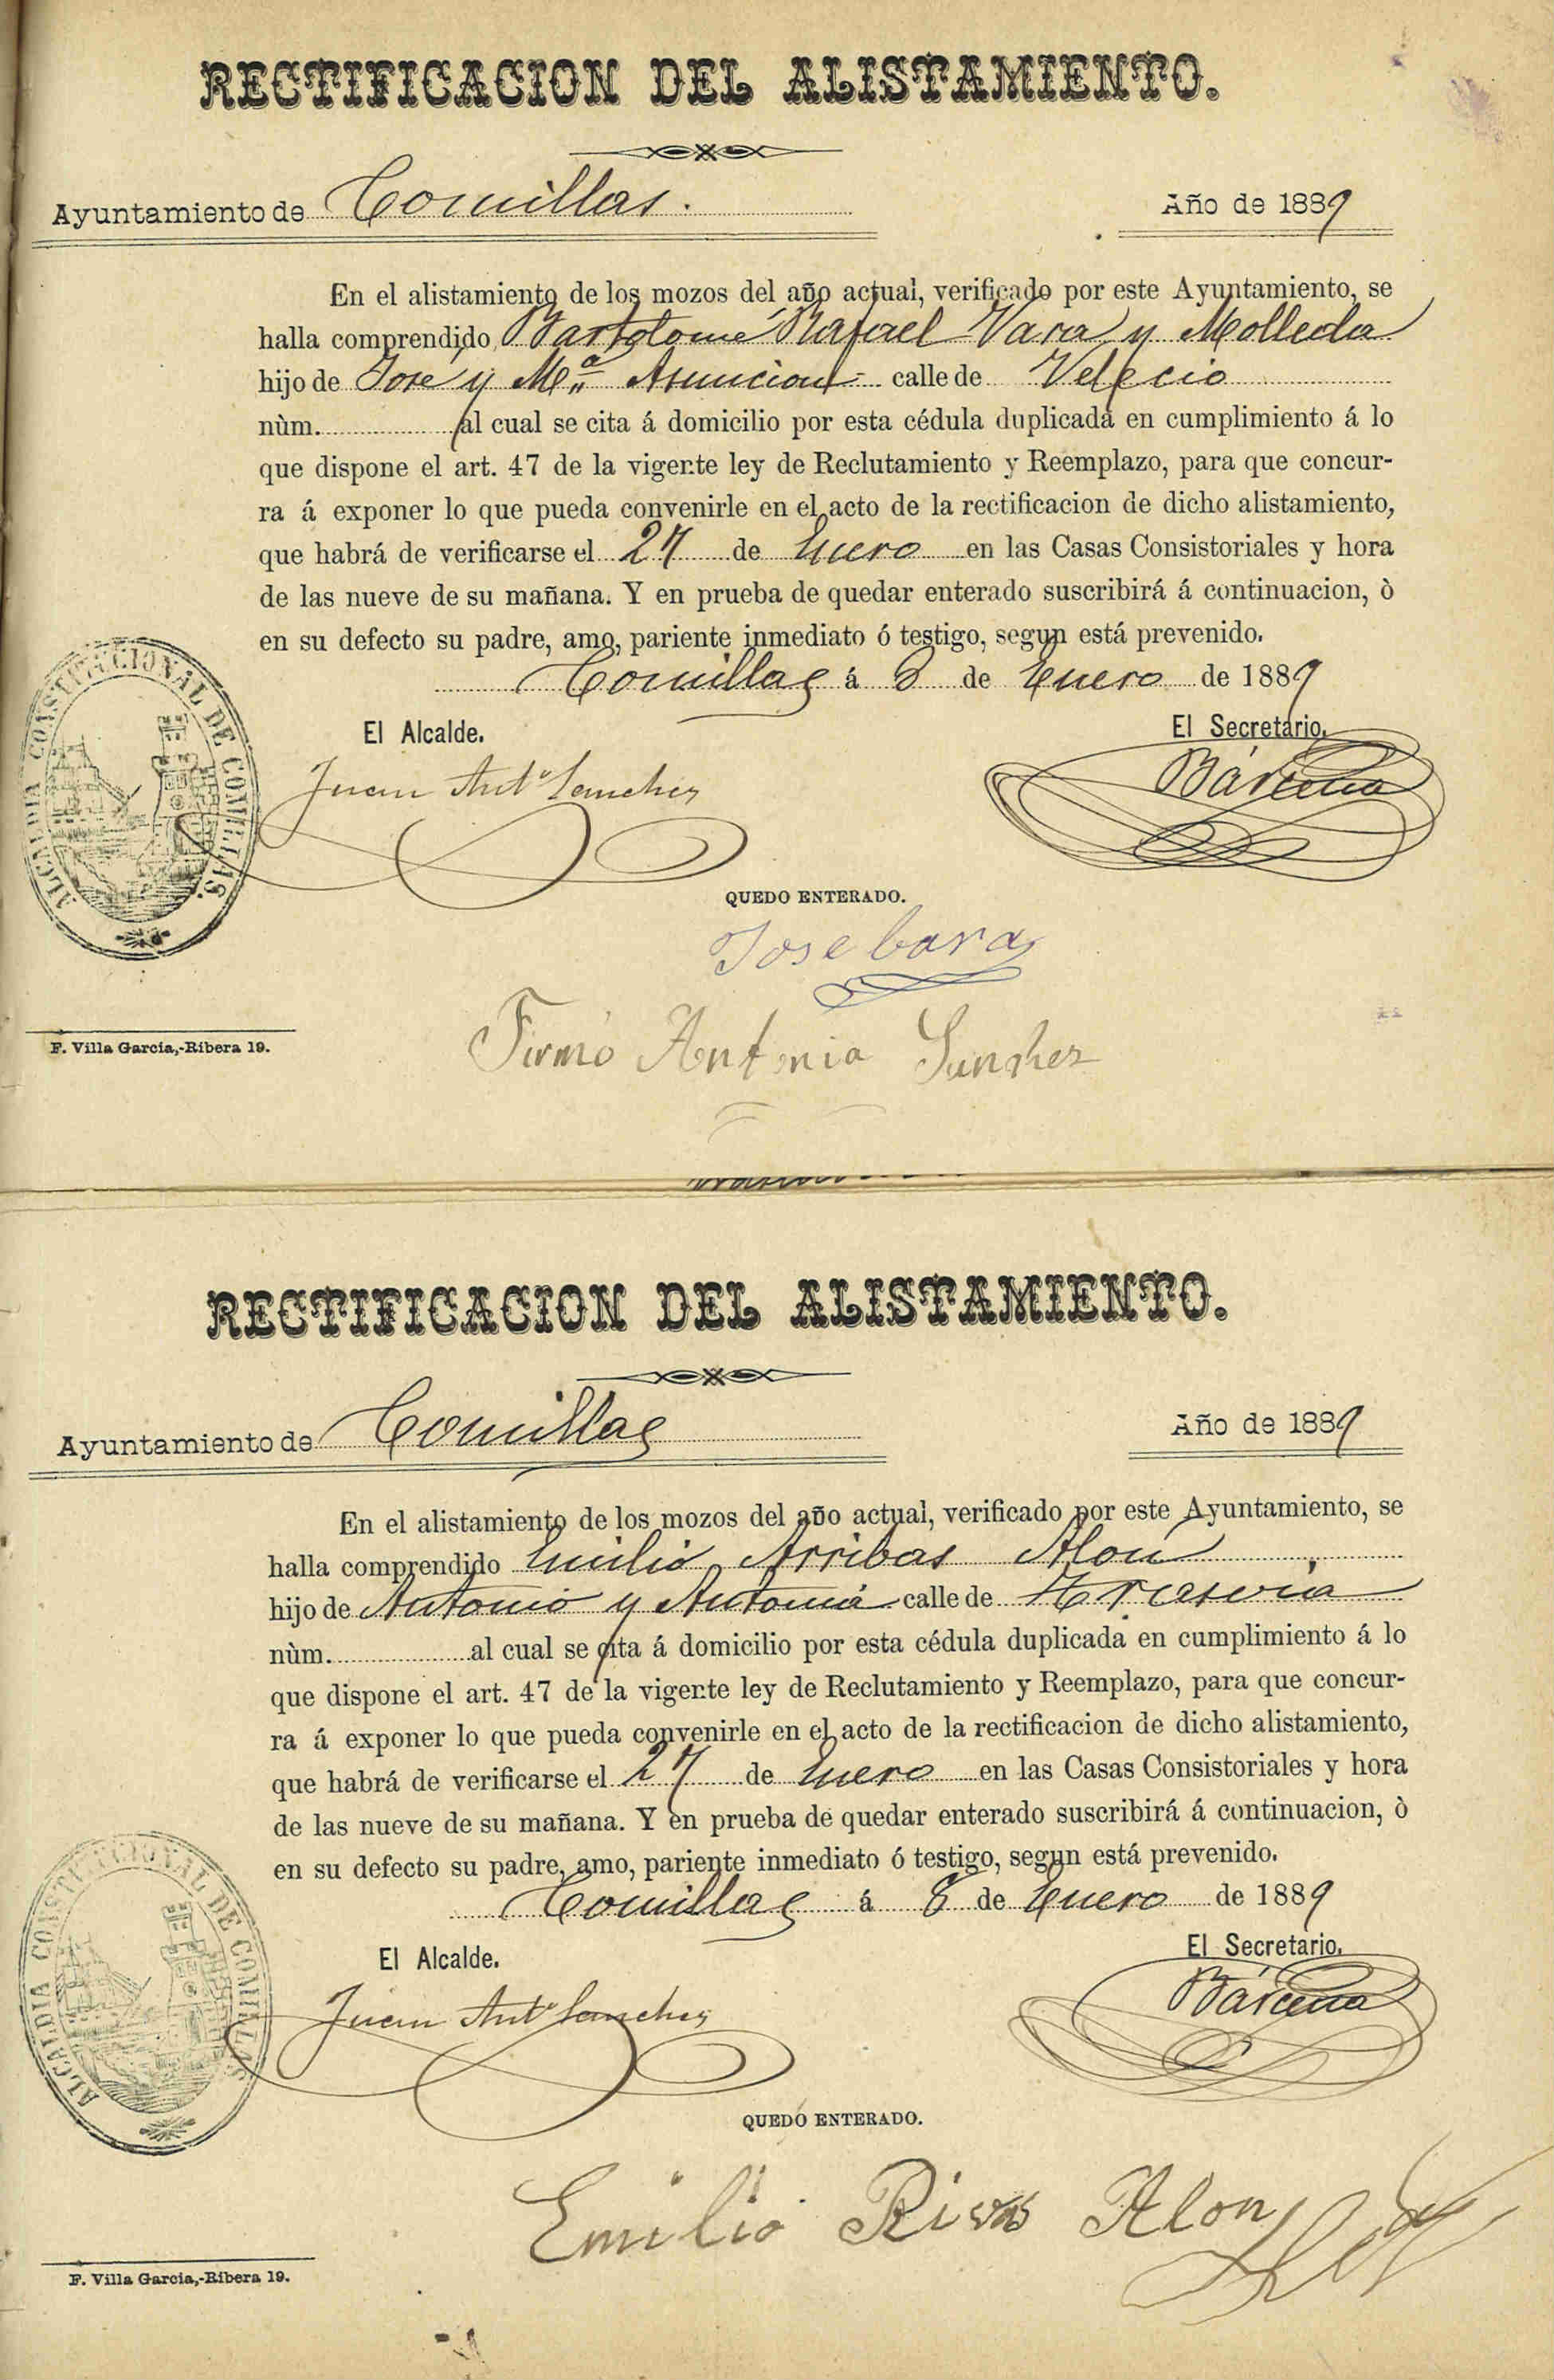 RECTIFICACION DEL ALISTAMIENTO.
Ayuntamiento de Comillas. Año de 1889
En el alistamiento de los mozos del año actual, verificado por este Ayuntamiento, se
halla comprendido Bartolomé Rafael Vara y Molleda
hijo de José y M.ª Asuncion calle de Velecio
nùm. al cual se cita á domicilio por esta cédula duplicada en cumplimiento á lo
que dispone el art. 47 de la vigente ley de Reclutamiento y Reemplazo, para que concur-
ra á exponer lo que pueda convenirle en el acto de la rectificacion de dicho alistamiento,
que habrá de verificarse el 27 de Enero en las Casas Consistoriales y hora
de las nueve de su mañana. Y en prueba de quedar enterado suscribirá á continuacion, ò
en su defecto su padre, amo, pariente inmediato ó testigo, segun está prevenido.
Comillas á 8 de Enero de 1889
El Alcalde. El Secretario.
Juan Antº Sanchez Bárcena
ALCALDIA CONSTITUCIONAL DE COMILLAS.
QUEDO ENTERADO.
Jose bara
Firmo Antonia Sanchez
F. Villa Garcia,-Ribera 19.
RECTIFICACION DEL ALISTAMIENTO.
Ayuntamiento de Comillas Año de 1889
En el alistamiento de los mozos del año actual, verificado por este Ayuntamiento, se
halla comprendido Emilio Arribas Alon
hijo de Antonio y Antonia calle de
nùm. al cual se cita á domicilio por esta cédula duplicada en cumplimiento á lo
que dispone el art. 47 de la vigente ley de Reclutamiento y Reemplazo, para que concur-
ra á exponer lo que pueda convenirle en el acto de la rectificacion de dicho alistamiento,
que habrá de verificarse el 27 de Enero en las Casas Consistoriales y hora
de las nueve de su mañana. Y en prueba de quedar enterado suscribirá á continuacion, ò
en su defecto su padre, amo, pariente inmediato ó testigo, segun está prevenido.
Comillas á 8 de Enero de 1889
El Alcalde. El Secretario.
Juan Antº Sanchez Bárcena
ALCALDIA CONSTITUCIONAL DE COMILLAS
QUEDO ENTERADO.
Emilio Rivas Alon
F. Villa Garcia,-Ribera 19.